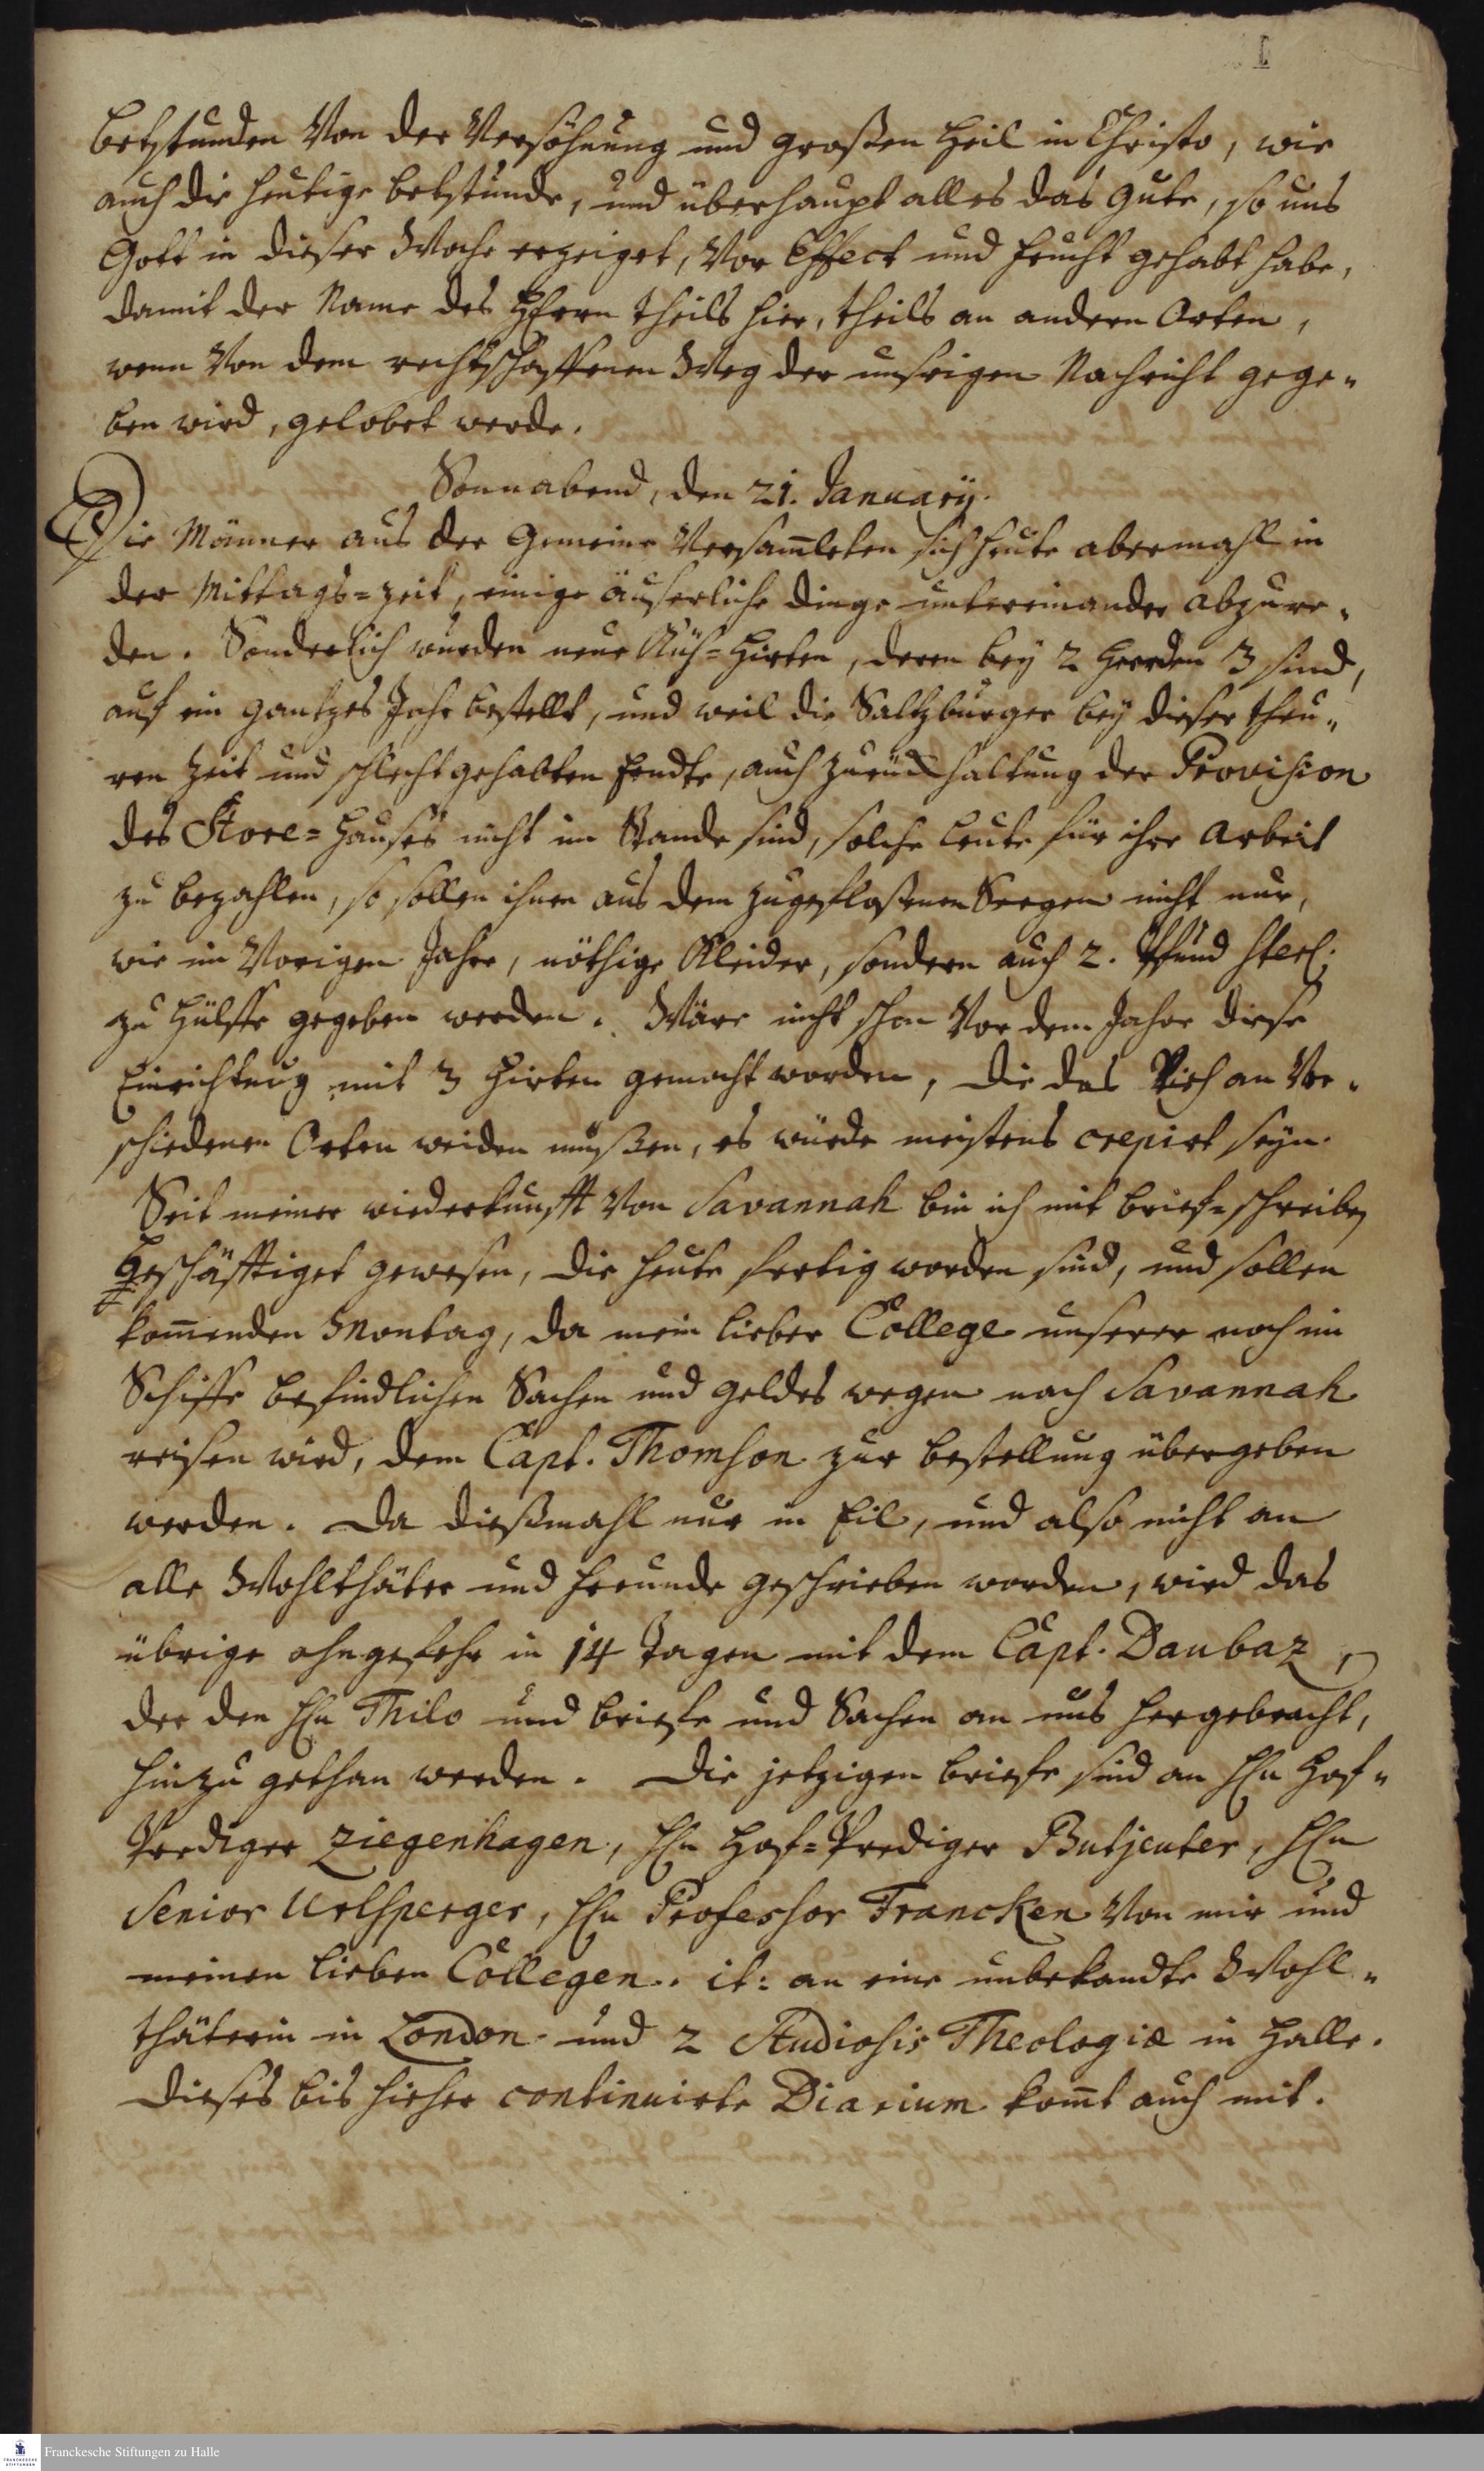 betstunden Von der Versöhnung und großen Heil in Christo, wie
auch die heutige betstunde, und überhaupt alles das Gute, so uns
Gott in dieser Woche erzeiget, Vor Effect und Frucht gehabt habe,
damit der Name des HErrn theils hier, theils an andern Orten,
wenn Von dem rechtschaffenen Weg der unsrigen Nachricht gege-
ben wird, gelobet werde.
Sonnabend, den 21. January.
Die Männer aus der Gemeine Versam̄leten sich heute abermahl in
der Mittags=zeit, einige äuserliche dinge untereinander abzure-
den. Sonderlich wurden neue Küh=Hirten, deren bey 2 Heerden 3 sind,
auf ein gantzes Jahr bestellt, und weil die Saltzburger bey dieser theu-
ren Zeit und schlecht gehabten Erndte, auch zurückhaltung der Provision
des Store=Hauses nicht im Stande sind, solche Leute für ihre Arbeit
zu bezahlen, so sollen ihnen aus dem zugefloßenen Seegen nicht nur,
wie im Vorigen Jahre, nöthige Kleider, sondern auch 2. Pfund Sterl:
zu Hülffe gegeben werden. Wäre nicht schon Vor dem Jahre diese
Einrichtung mit 3 Hirten gemacht worden, die das Vieh an Ver-
schiedenen Orten weiden mußen, es würde meistens crepirt seyn.
Seit meiner wiederkunfft Von Savannah bin ich mit brief=schreiben
geschäfftiget gewesen, die heute fertig worden sind, und sollen
kom̄enden Montag, da mein lieber College unserer noch im
Schiffe befindlichen Sachen und Geldes wegen nach Savannah
reisen wird, dem Capt. Thomson zur bestellung übergeben
werden. Da dießmahl nur in Eil, und also nicht an
alle Wohlthäter und Freunde geschrieben worden, wird das
übrige ohngefehr in 14 Tagen mit dem Capt. Daubaz,
der den HEn Thilo und briefe und Sachen an uns hergebracht,
hinzu gethan werden. Die jetzigen briefe sind an HEn Hof-
Prediger Ziegenhagen, HEn Hof=Prediger Butjenter, HEn
Senior Urlsperger, HEn Professor Francken Von mir und
meinen lieben Collegen. it: an eine unbekandte Wohl-
thäterin in London und 2 Studiosis Theologiæ in Halle.
Dieses bis hieher continuirte Diarium kom̄t auch mit.
Franckesche Stiftungen zu Halle